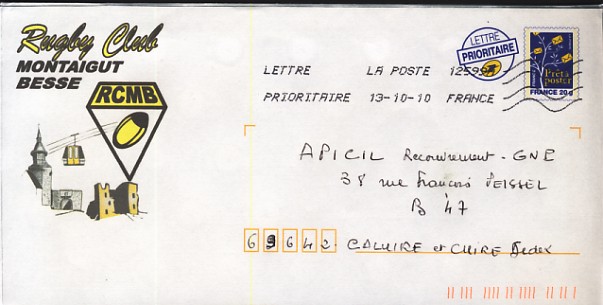 Rugby Club
MONTAIGUT
BESSE
RCMB
LETTRE
PRIORITAIRE
Prêt à
poster
FRANCE 20g
LETTRE LA POSTE
PRIORITAIRE 13-10-10 FRANCE
APICIL Recouvrement - GNE
38 rue François PEISSEL
B 47
69642 CALUIRE et CUIRE Cedex